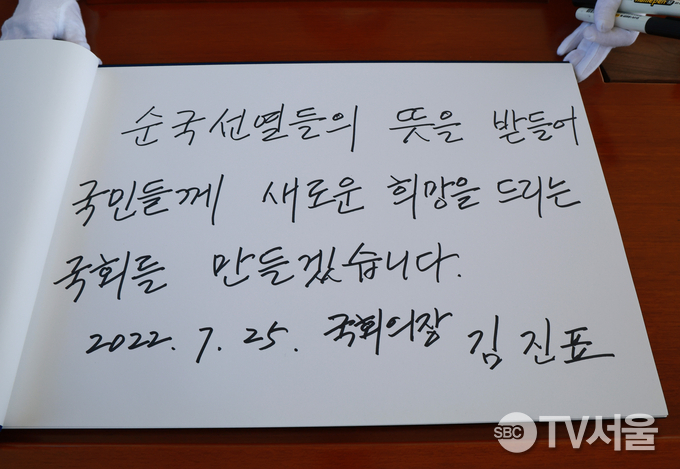 순국선열들의 뜻을 받들어
국민들께 새로운 희망을 드리는
국회를 만들겠습니다.
2022. 7. 25. 국회의장 김진표
SBC TV서울